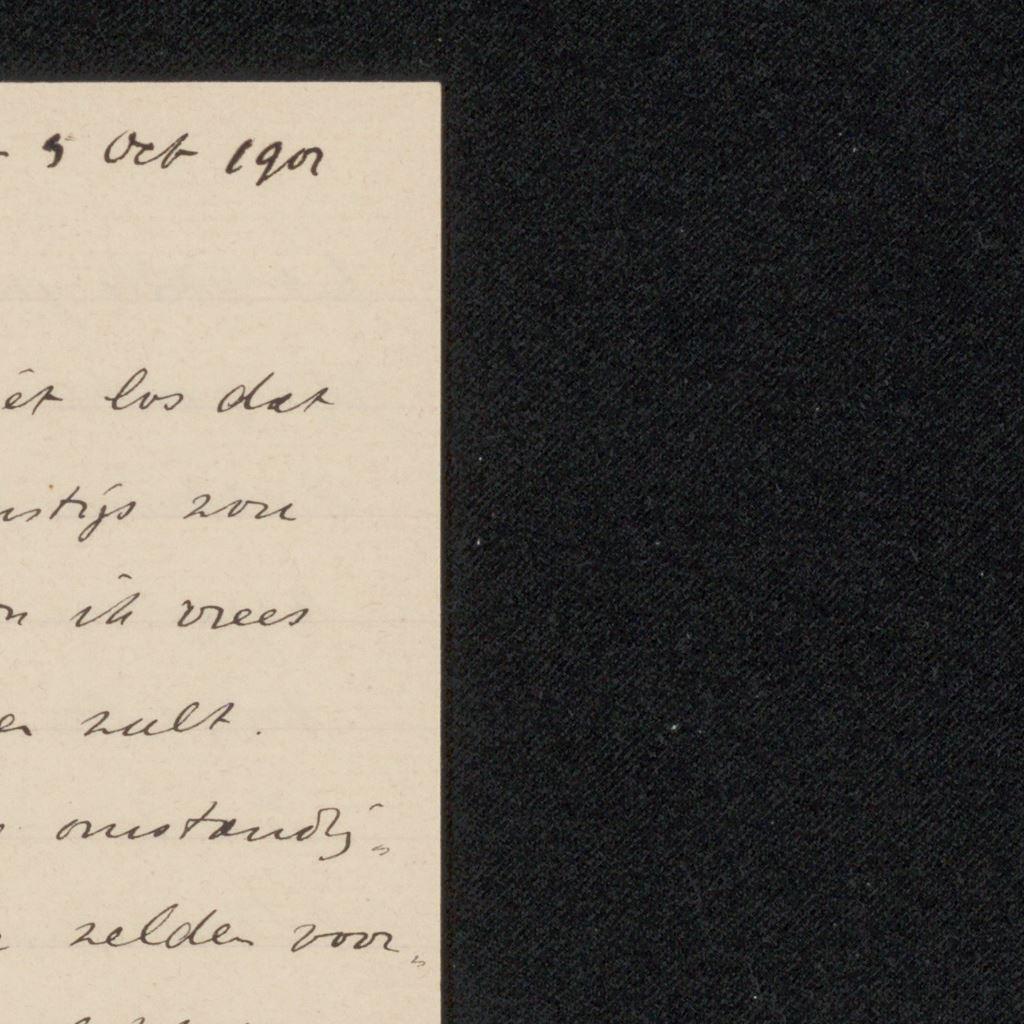 5 Oct 1901
los dat
zou
ik vrees
zult.
omstandig„
zelden voor„